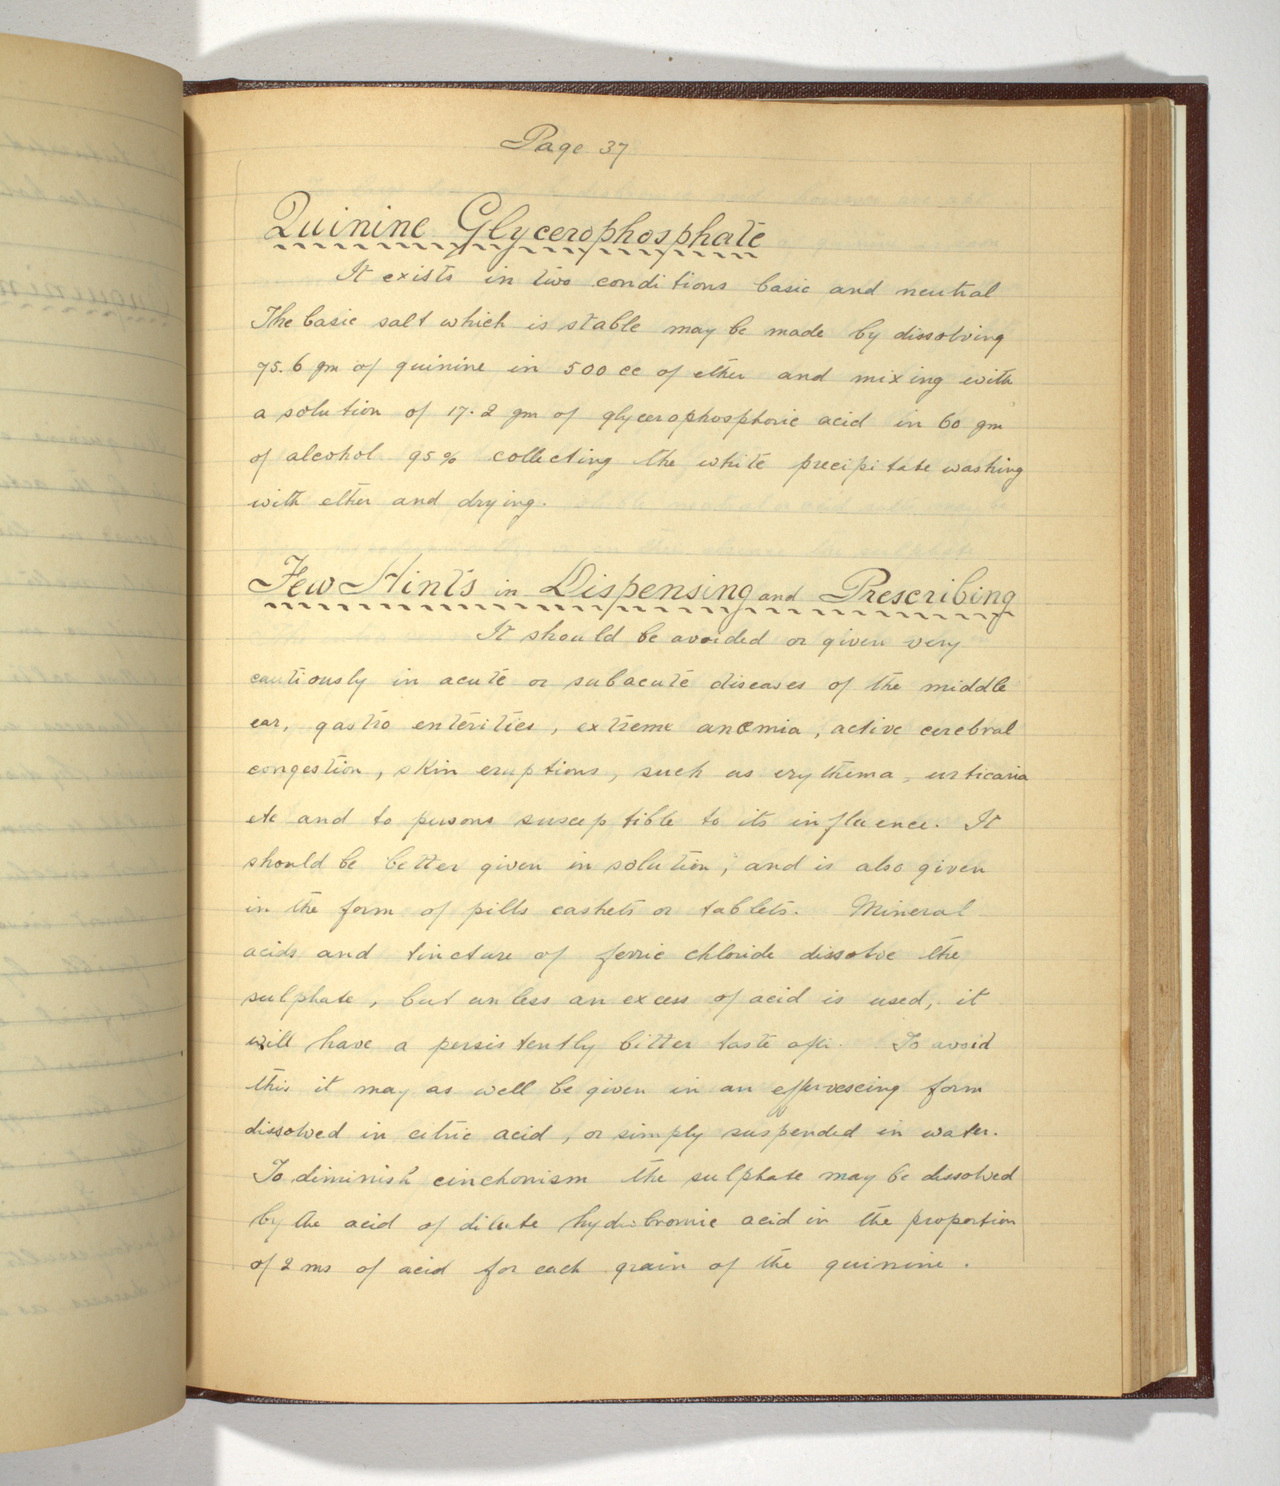 Page 37
Quinine Glycerophosphate
It exists in two conditions basic and neutral
The basic salt which is stable may be made by dissolving
75.6 gm of quinine in 500 cc of ether and mixing with
a solution of 17.2 gm of glycerophosphoric acid in 60 gm
of alcohol 95% collecting the white precipitate washing
with ether and drying.
Few Hints in Dispensing and Prescribing
It should be avoided or given very
cautiously in acute or subacute diseases of the middle
ear, gastro enterities, extreme anœmia, active cerebral
congestion, skin eruptions, such as erythema, urticaria
etc and to persons susceptible to its influence. It
should be better given in solution; and is also given
in the form of pills cashets or tablets. Mineral
acids and tincture of ferric chloride dissolve the
sulphate, but unless an excess of acid is used, it
will have a persistently bitter taste
To avoid
this it may as well be given in an effervescing form
dissolved in citric acid, or simply suspended in water.
To diminish cinchonism the sulphate may be dissolved
by the acid of dilute hydrobromic acid in the proportion
of 2 ms of acid for each grain of the quinine.